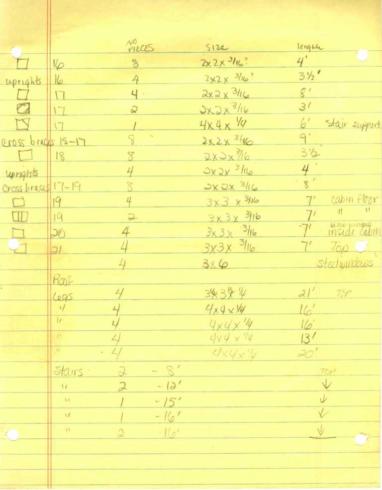 NO PIECES SIZE length
16 8 2x2x 3/16" 4'
uprights 16 4 2x2x 3/16" 3½'
17 4 2x2x 3/16 8'
17 2 2x2x 3/16 3'
17 1 4x4x 1/4 6' Stair support
cross braces 15-17 8 2x2x 3/16 9'
18 8 2x2x 3/16 3½
uprights 4 2x2x 3/16 4'
Cross braces 17-19 8 2x2x 3/16 8'
19 4 3x3 x 3/16 7' Cabin Floor
19 2 3x3x 3/16 7' " "
20 4 3x3x 3/16 7' inside cabin
21 4 3x3x 3/16 7' Top
4 3x6
Legs 4 21' TOP
" 4 4x4x 1/4 16'
" 4 4x4x 1/4 16'
" 4 4x4x 1/4 13'
" 4 4x4x 1/4 20'
Stairs 2 - 8' TOP
" 2 - 12' ↓
" 1 - 15' ↓
" 1 - 16' ↓
" 2 - 16' ↓